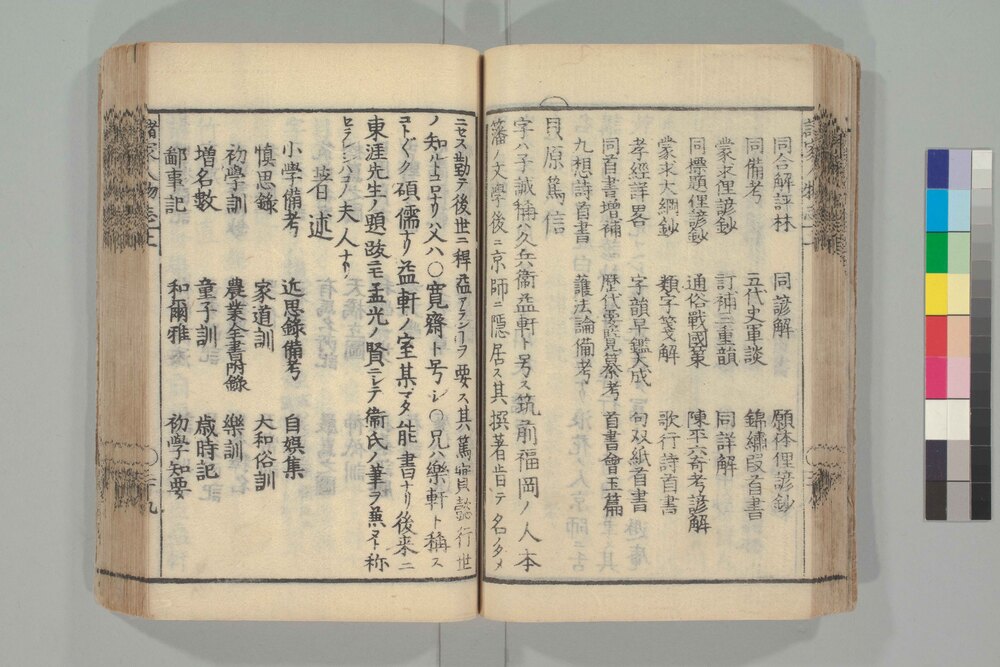 同合解評林 同諺解 願体俚諺鈔
同備考 五代史軍談 錦繡段首書
蒙求俚諺鈔 訂補三重韻 同詳解
同標題俚諺鈔 通俗戰國策 陳平六奇考諺解
蒙求大綱鈔 類字箋解 歌行詩首書
孝經詳畧 字韻早鑑大成 句双紙首書
同首書增補 歷代要覽纂考 首書會玉篇
九想詩首書 護法論備考
貝原篤信
字ハ子誠稱ハ久兵衞益軒ト号ス筑前福岡ノ人本
藩ノ文學後ニ京師ニ隱居ス其撰著皆テ名ノタメ
ニセス勤テ後世ニ稗益アランヿヲ要ス其篤實懿行世
ノ知ルトコロナリ父ハ寬齋ト号シ兄ハ樂軒ト稱ス
コト〴〵ク碩儒ナリ益軒ノ室某マタ能書ナリ後來ニ
東涯先生ノ題跋ニモ孟光ノ賢ニシテ衞氏ノ筆ヲ兼ヌト称
セラレシハコノ夫人ナリ
著述
小學備考 近思錄備考 自娯集
愼思錄 家道訓 大和俗訓
初學訓 農業全書附錄 樂訓
增名數 童子訓 歲時記
鄙事記 和爾雅 初學知要
諸家人物志上